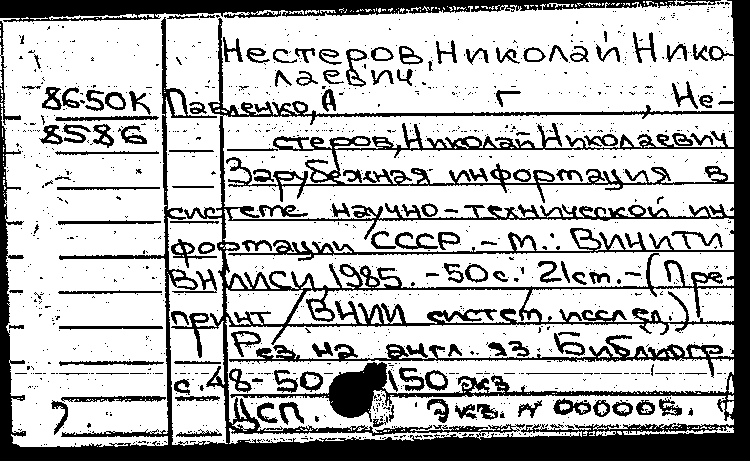 Нестеров, Николай Нико-
лаевич.
8650К Павленко, А Г , Не-
8586 стеров, Николай Николаевич
Зарубежная информация в
системе научно-технической ин-
формации СССР. - М.: ВИНИТИ
ВНИИСИ, 1985. - 50с.: 21см. - (Пре-
принт / ВНИИ систем. исслед.).
Рез. на англ. яз. Библиогр.
с. 48-50 150 экз.
ДСП. Экз. N 000005.